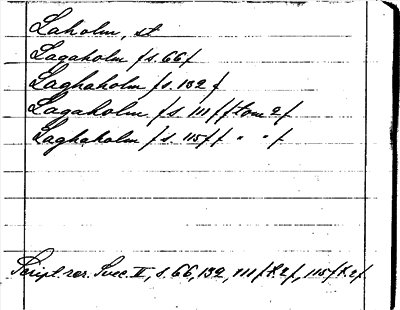 Laholm, st
Lagaholm /s. 66/
Laghaholm /s. 132/
Lagaholm /s. 111/ /tom 2/
Laghaholm /s. 115/ / " " /
Script. rer. Svec. II, s. 66, 132, 111/t. 2/, 115/t. 2/